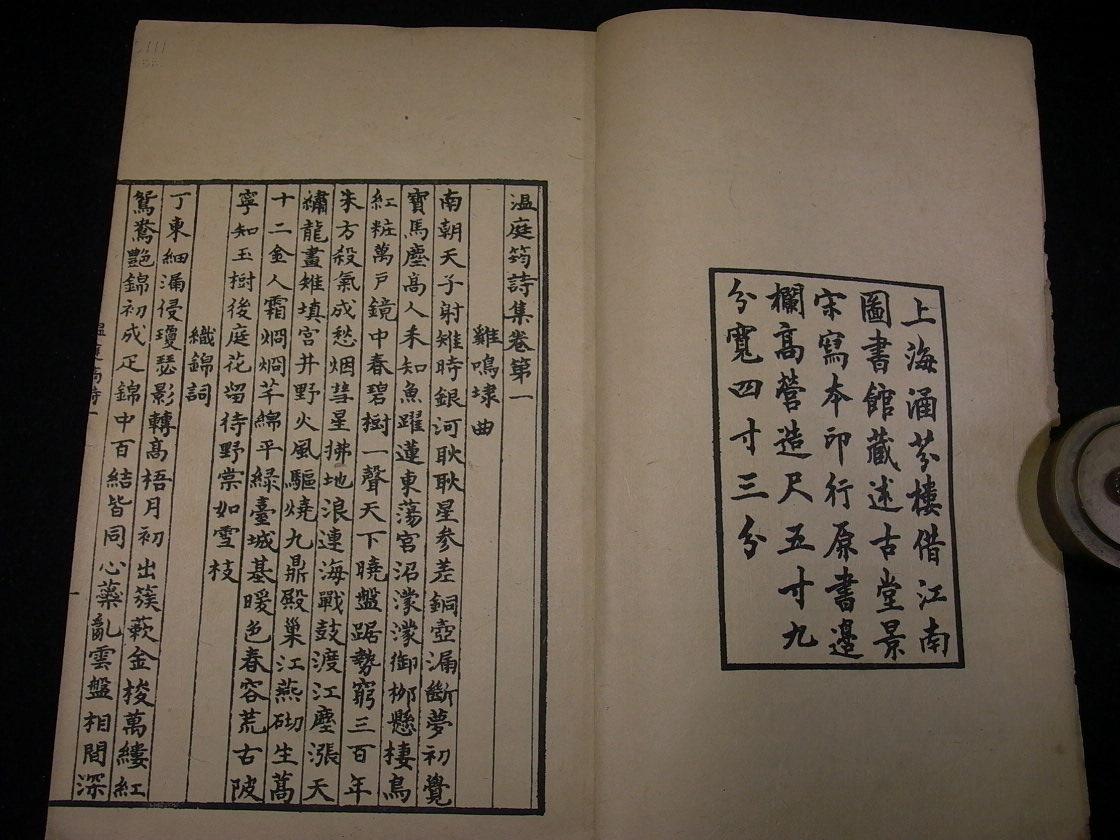 上海涵芬樓借江南
圖書館藏述古堂景
宋寫本印行原書邊
欄高營造尺五寸九
分寬四寸三分
温庭筠詩集卷第一
雞鳴埭曲
南朝天子射雉時銀河耿耿星參差銅壺漏斷夢初覺
寶馬塵高人未知魚躍蓮東蕩宮沼濛濛御柳懸棲鳥
紅粧萬戶鏡中春碧樹一聲天下曉盤踞勢窮三百年
朱方殺氣成愁烟彗星拂地浪連海戰鼓渡江塵漲天
繡龍畫雉填宮井野火風驅燒九鼎殿巢江燕砌生蒿
十二金人霜炯炯芊綿平緑臺城基暖色春容荒古陂
寧知玉樹後庭花留待野棠如雪枝
織錦詞
丁東細漏侵瓊瑟影轉高梧月初出簇蔌金梭萬縷紅
鴛鴦艶錦初成疋錦中百結皆同心蘂亂雲盤相間深